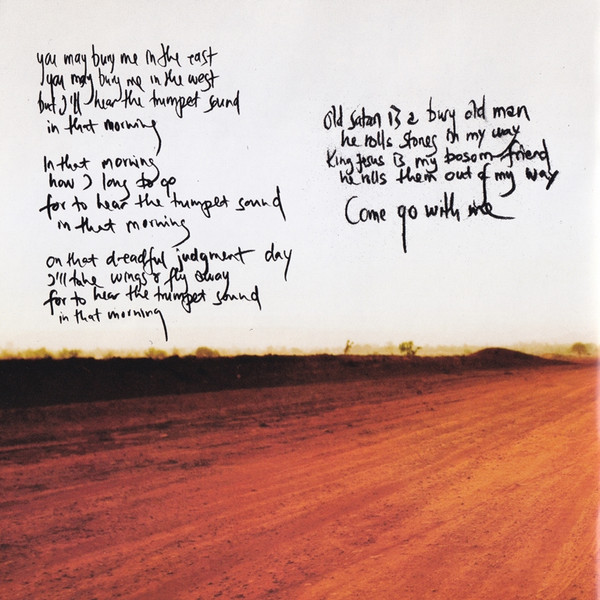 you may bury me in the east
you may bury me in the west
but I'll hear the trumpet sound
in that morning
In that morning
how I long to go
for to hear the trumpet sound
in that morning
on that dreadful judgment day
I'll take wings & fly away
for to hear the trumpet sound
in that morning
old satan is a busy old man
he rolls stones in my way
King Jesus is my bosom friend
he rolls them out of my way
Come go with me